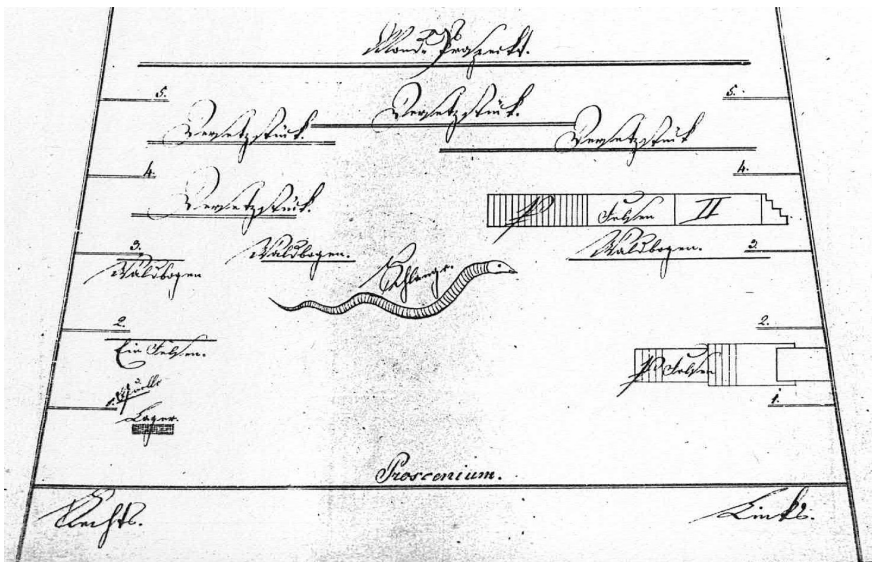 Wand-Prospekt.
5.
5.
Versetzstück.
Versetzstück.
Versetzstück
4.
4.
Versetzstück.
Felsen II
3.
Waldbogen
Waldbogen.
Schlange.
Waldbogen.
3.
2.
2.
Ein Felsen.
Felsen
Quelle
1.
Lager.
1.
Proscenium.
Rechts.
Links.